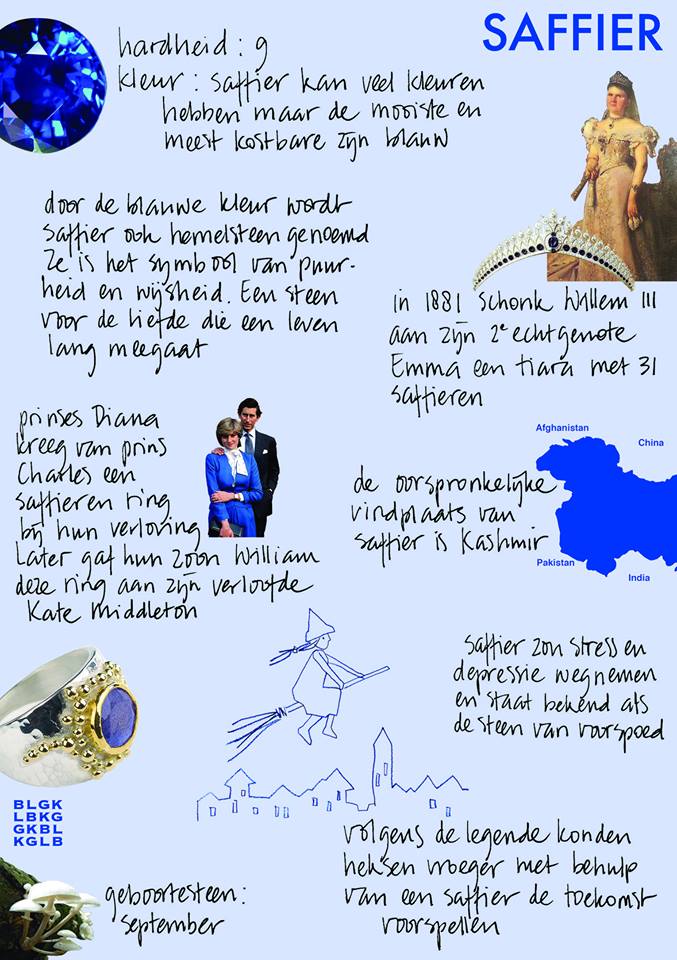 SAFFIER
hardheid : 9
kleur : saffier kan veel kleuren
hebben maar de mooiste en
meest kostbare zijn blauw
door de blauwe kleur wordt
saffier ook hemelsteen genoemd
Ze is het symbool van puur-
heid en wijsheid. Een steen
voor de liefde die een leven
lang meegaat
in 1881 schonk Willem III
aan zijn 2e echtgenote
Emma een tiara met 31
saffieren
prinses Diana
kreeg van prins
Charles een
saffieren ring
bij hun verloving
Later gaf hun zoon William
deze ring aan zijn verloofde
Kate Middleton
Afghanistan
China
de oorspronkelijke
vindplaats van
saffier is Kashmir
Pakistan
India
saffier zou stress en
depressie wegnemen
en staat bekend als
de steen van voorspoed
BLGK
LBKG
GKBL
KGLB
volgens de legende konden
heksen vroeger met behulp
van een saffier de toekomst
voorspellen
geboortesteen :
september